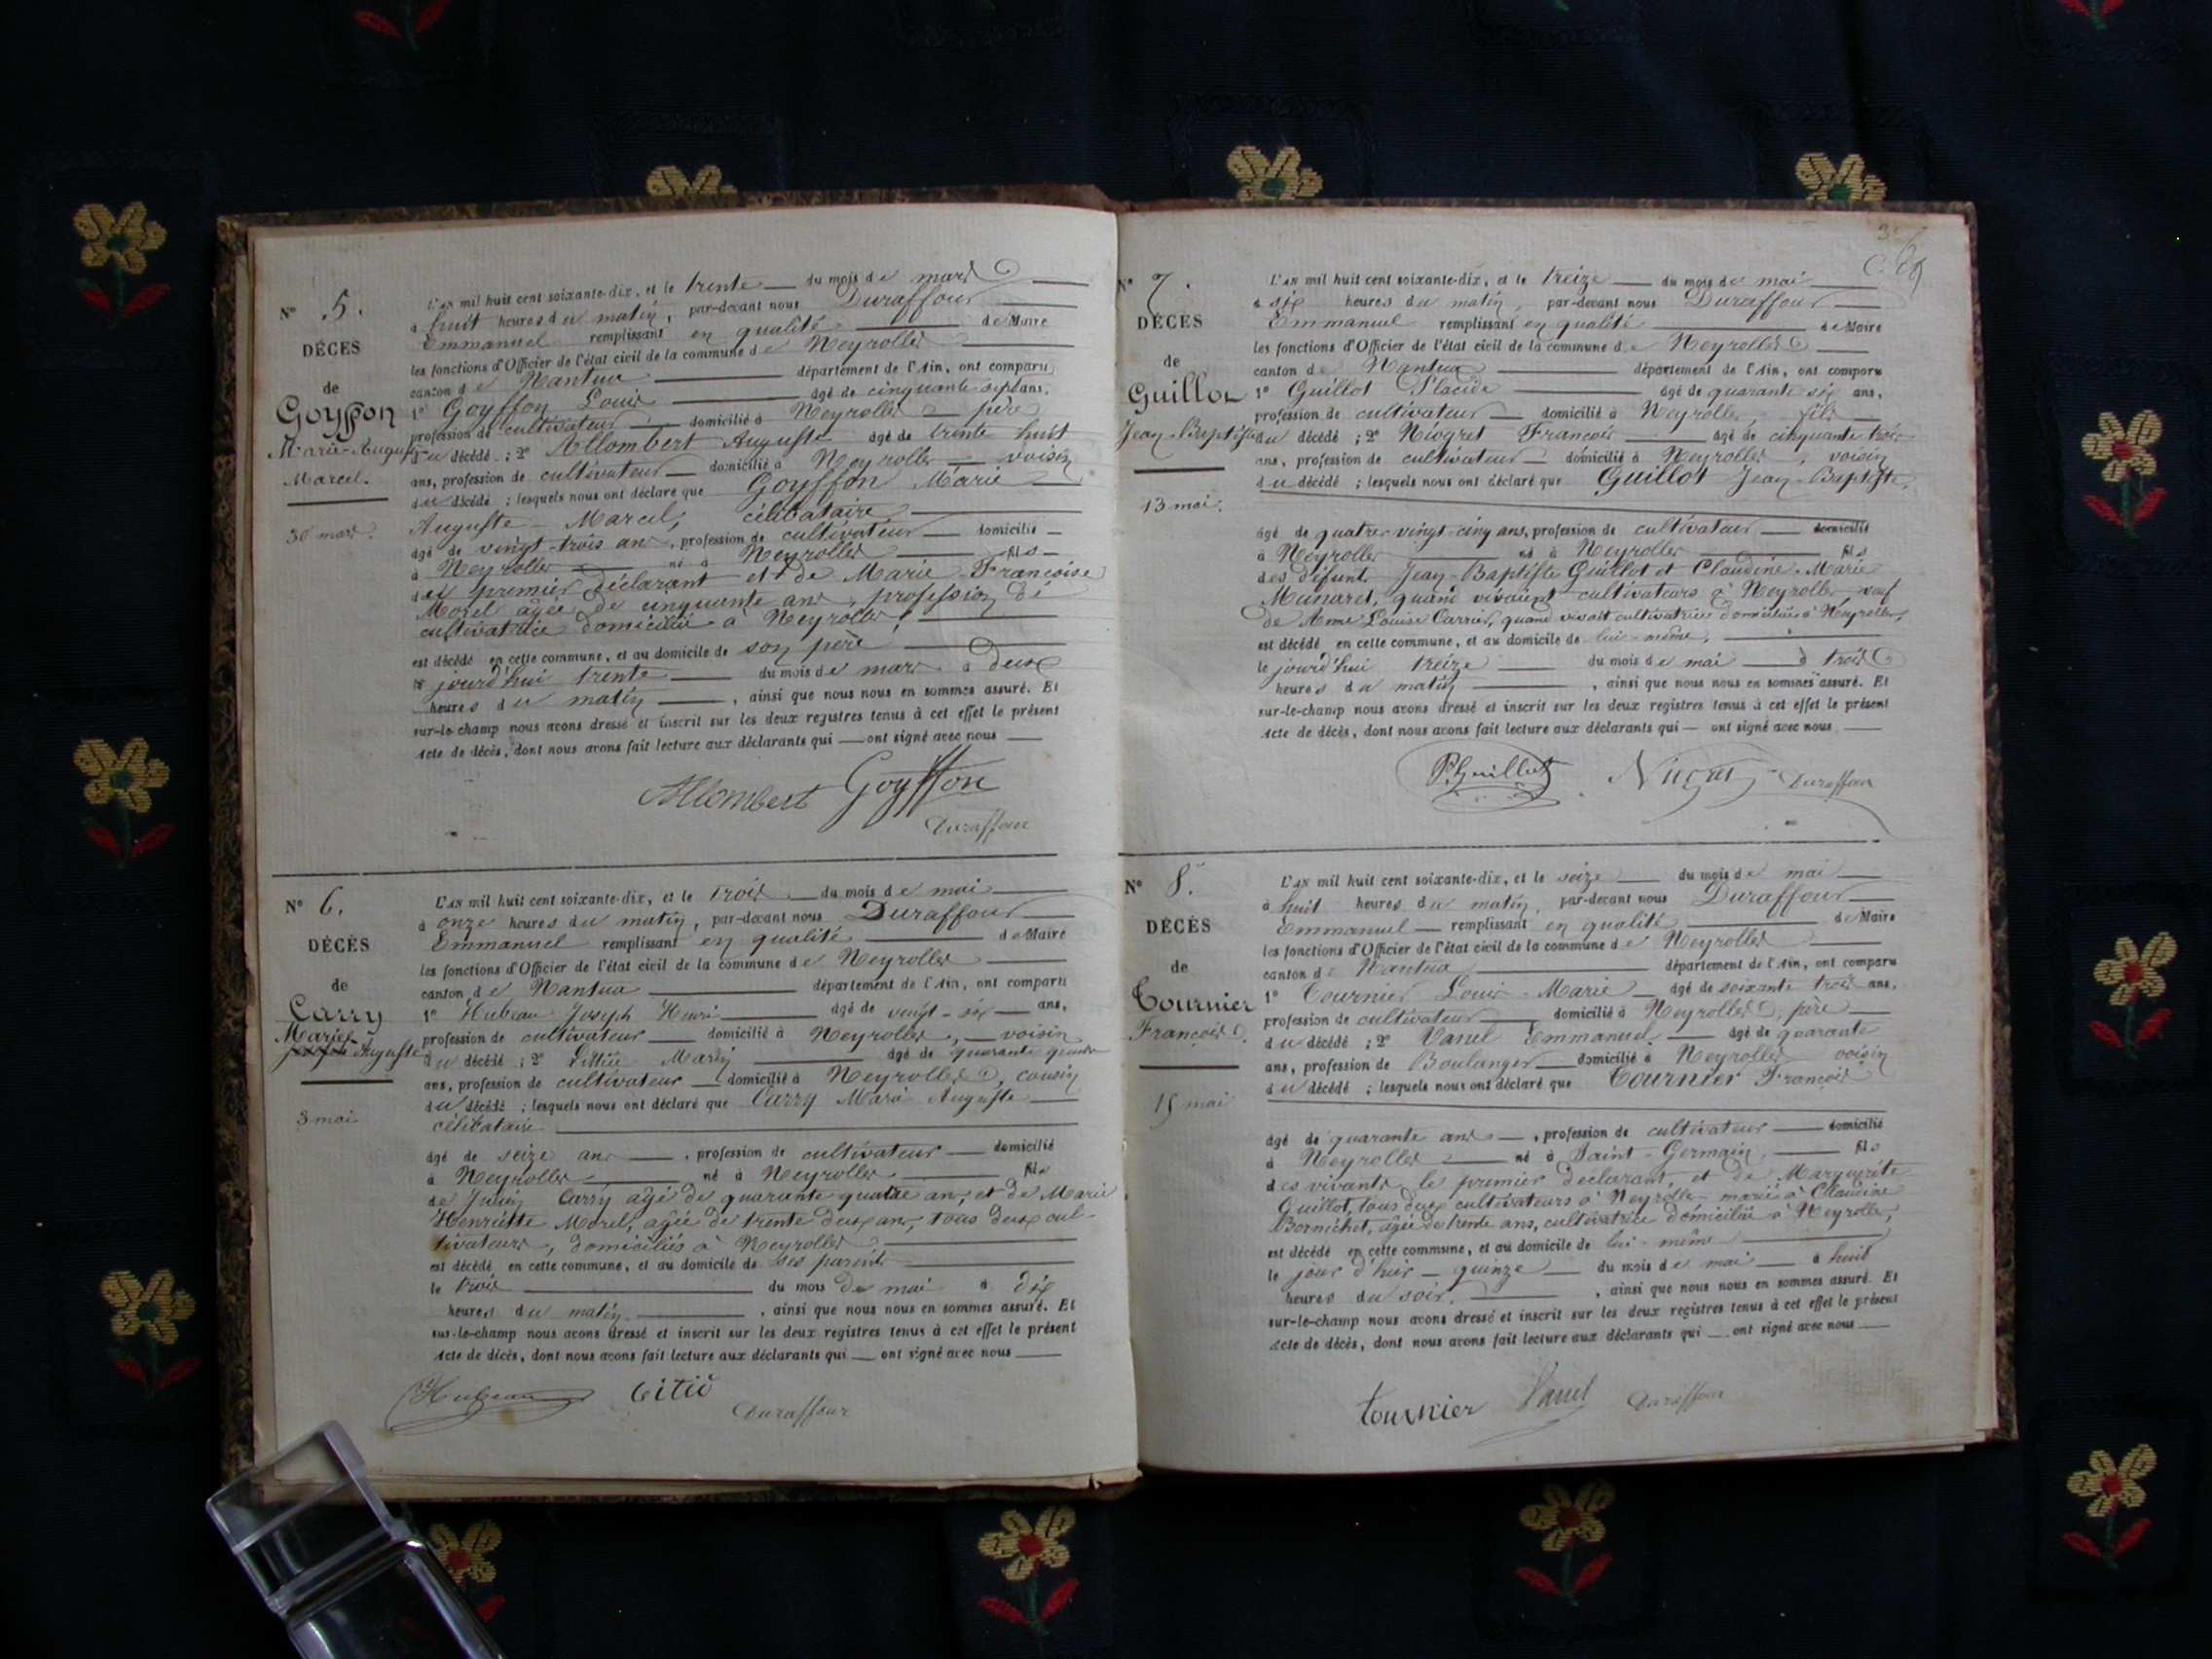 N° 5.
DÉCÈS
de
Goyffon
Marie-Auguste
Marcel.
30 mars.
L'AN mil huit cent soixante-dix, et le trente du mois de mars
à huit heures du matin, par-devant nous Duraffour
Emmanuel remplissant en qualité de Maire
les fonctions d'Officier de l'état civil de la commune de Neyrolles
canton de Nantua département de l'Ain, ont comparu
1° Goyffon Louis âgé de cinquante sept ans,
profession de cultivateur domicilié à Neyrolles père
du décédé ; 2° Allombert Auguste âgé de trente huit
ans, profession de cultivateur domicilié à Neyrolles voisin
du décédé ; lesquels nous ont déclaré que Goyffon Marie
Auguste - Marcel, célibataire
âgé de vingt-trois ans, profession de cultivateur domicilié
à Neyrolles né à Neyrolles fils
du premier déclarant et de Marie-Françoise
Morel âgée de cinquante ans, profession de
cultivatrice domiciliée à Neyrolles,
est décédé en cette commune, et au domicile de son père
le jourd'hui trente du mois de mars à deux
heures du matin, ainsi que nous nous en sommes assuré. Et
sur-le-champ nous avons dressé et inscrit sur les deux registres tenus à cet effet le présent
acte de décès, dont nous avons fait lecture aux déclarants qui ont signé avec nous
Allombert Goyffon
Duraffour
N° 6.
DÉCÈS
de
Carry
Marie
Auguste
3 mai
L'AN mil huit cent soixante-dix, et le trois du mois de mai
à onze heures du matin, par-devant nous Duraffour
Emmanuel remplissant en qualité de Maire
les fonctions d'Officier de l'état civil de la commune de Neyrolles
canton de Nantua département de l'Ain, ont comparu
1° Hubeau Joseph Henri âgé de vingt-six ans,
profession de cultivateur domicilié à Neyrolles, voisin
du décédé ; 2° âgé de quarante
ans, profession de cultivateur domicilié à Neyrolles, cousin
du décédé ; lesquels nous ont déclaré que Carry Marie Auguste
célibataire
âgé de seize ans, profession de cultivateur domicilié
à Neyrolles né à Neyrolles fils
de Carry âgé de quarante quatre ans, et de Marie
Henriette Morel, âgée de trente deux ans, tous deux cul-
tivateurs, domiciliés à Neyrolles
est décédé en cette commune, et au domicile de ses parents
le trois du mois de mai à dix
heures du matin, ainsi que nous nous en sommes assuré. Et
sur-le-champ nous avons dressé et inscrit sur les deux registres tenus à cet effet le présent
acte de décès, dont nous avons fait lecture aux déclarants qui ont signé avec nous
Hubeau
Duraffour
N° 7.
DÉCÈS
de
Guillot
Jean-Baptiste
13 mai.
L'AN mil huit cent soixante-dix, et le treize du mois de mai
à six heures du matin, par-devant nous Duraffour
Emmanuel remplissant en qualité de Maire
les fonctions d'Officier de l'état civil de la commune de Neyrolles
canton de Nantua département de l'Ain, ont comparu
1° Guillot Placide âgé de quarante six ans,
profession de cultivateur domicilié à Neyrolles, fils
du décédé ; 2° Niogret François âgé de cinquante trois
ans, profession de cultivateur domicilié à Neyrolles, voisin
du décédé ; lesquels nous ont déclaré que Guillot Jean-Baptiste,
âgé de quatre vingt-cinq ans, profession de cultivateur domicilié
à Neyrolles né à Neyrolles fils
des défunts Jean-Baptiste Guillot et Claudine-Marie
Munaret, quand vivaient cultivateurs à Neyrolles, veuf
de Anne Louise Carrier, quand vivait cultivatrice domiciliée à Neyrolles,
est décédé en cette commune, et au domicile de lui-même,
le jourd'hui treize du mois de mai à trois
heures du matin, ainsi que nous nous en sommes assuré. Et
sur-le-champ nous avons dressé et inscrit sur les deux registres tenus à cet effet le présent
acte de décès, dont nous avons fait lecture aux déclarants qui ont signé avec nous
P. Guillot Duraffour
N° 8.
DÉCÈS
de
Tournier
François.
15 mai
L'AN mil huit cent soixante-dix, et le seize du mois de mai
à huit heures du matin, par-devant nous Duraffour
Emmanuel remplissant en qualité de Maire
les fonctions d'Officier de l'état civil de la commune de Neyrolles
canton de Nantua département de l'Ain, ont comparu
1° Tournier Louis-Marie âgé de soixante trois ans,
profession de cultivateur domicilié à Neyrolles, père
du décédé ; 2° Vanel Emmanuel âgé de quarante
ans, profession de Boulanger domicilié à Neyrolles voisin
du décédé ; lesquels nous ont déclaré que Tournier François
âgé de quarante ans, profession de cultivateur domicilié
à Neyrolles né à Saint-Germain, fils
des vivants, le premier déclarant, et de Marguerite
Guillot, tous deux cultivateurs à Neyrolles marié à Claudine
Bornichet, âgée de trente ans, cultivatrice domiciliée à Neyrolles,
est décédé en cette commune, et au domicile de lui-même
le jour d'hier quinze du mois de mai à huit
heures du soir, ainsi que nous nous en sommes assuré. Et
sur-le-champ nous avons dressé et inscrit sur les deux registres tenus à cet effet le présent
acte de décès, dont nous avons fait lecture aux déclarants qui ont signé avec nous
Tournier Vanel Duraffour